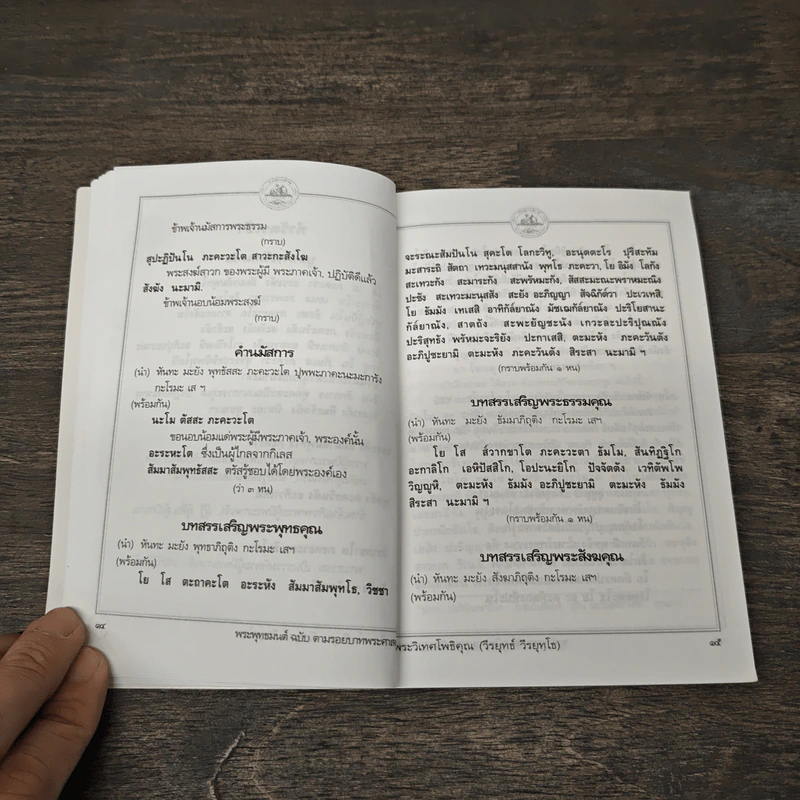 ข้าพเจ้านมัสการพระธรรม
(กราบ)
สุปะฏิปันโน ภะคะวะโต สาวะกะสังโฆ
พระสงฆ์สาวก ของพระผู้มี พระภาคเจ้า, ปฏิบัติดีแล้ว
สังฆัง นะมามิ.
ข้าพเจ้านอบน้อมพระสงฆ์
(กราบ)
คำนมัสการ
(นำ) หันทะ มะยัง พุทธัสสะ ภะคะวะโต ปุพพะภาคะนะมะการัง
กะโรมะ เส ฯ
(พร้อมกัน)
นะโม ตัสสะ ภะคะวะโต
ขอนอบน้อมแด่พระผู้มีพระภาคเจ้า, พระองค์นั้น
อะระหะโต ซึ่งเป็นผู้ไกลจากกิเลส
สัมมาสัมพุทธัสสะ ตรัสรู้ชอบได้โดยพระองค์เอง
(ว่า ๓ หน)
บทสรรเสริญพระพุทธคุณ
(นำ) หันทะ มะยัง พุทธาภิถุติง กะโรมะ เสฯ
(พร้อมกัน)
โย โส ตะถาคะโต อะระหัง สัมมาสัมพุทโธ, วิชชา
๑๔
พระพุทธมนต์ ฉบับ ตามรอยบาทพระศาส
จะระณะสัมปันโน สุคะโต โลกะวิทู, อะนุตตะโร ปุริสะทัม
มะสาระถิ สัตถา เทวะมนุสสานัง พุทโธ ภะคะวา, โย อิมัง โลกัง
สะเทวะกัง สะมาระกัง สะพรัหมะกัง, สัสสะมะณะพราหมะณิง
ปะชัง สะเทวะมะนุสสัง สะยัง อะภิญญา สัจฉิกัตวา ปะเวเทสิ,
โย ธัมมัง เทเสสิ อาทิกัล๎ยาณัง มัชเฌกัล๎ยาณัง ปะริโยสานะ
กัล๎ยาณัง, สาตถัง สะพะยัญชะนัง เกวะละปะริปุณณัง
ปะริสุทธัง พรัหมะจะริยัง ปะกาเสสิ, ตะมะหัง ภะคะวันตัง
อะภิปูชะยามิ ตะมะหัง ภะคะวันตัง สิระสา นะมามิ ฯ
(กราบพร้อมกัน ๑ หน)
บทสรรเสริญพระธรรมคุณ
(นำ) หันทะ มะยัง ธัมมาภิถุติง กะโรมะ เสฯ
(พร้อมกัน)
โย โส ส๎วากขาโต ภะคะวะตา ธัมโม, สันทิฏฐิโก
อะกาลิโก เอหิปัสสิโก, โอปะนะยิโก ปัจจัตตัง เวทิตัพโพ
วิญญูหิ, ตะมะหัง ธัมมัง อะภิปูชะยามิ ตะมะหัง ธัมมัง
สิระสา นะมามิ ฯ
(กราบพร้อมกัน ๑ หน)
บทสรรเสริญพระสังฆคุณ
(นำ) หันทะ มะยัง สังฆาภิถุติง กะโรมะ เสฯ
(พร้อมกัน)
พระวิเทศโพธิคุณ (วีรยุทธ์ วีรยุทฺโธ)
๑๕